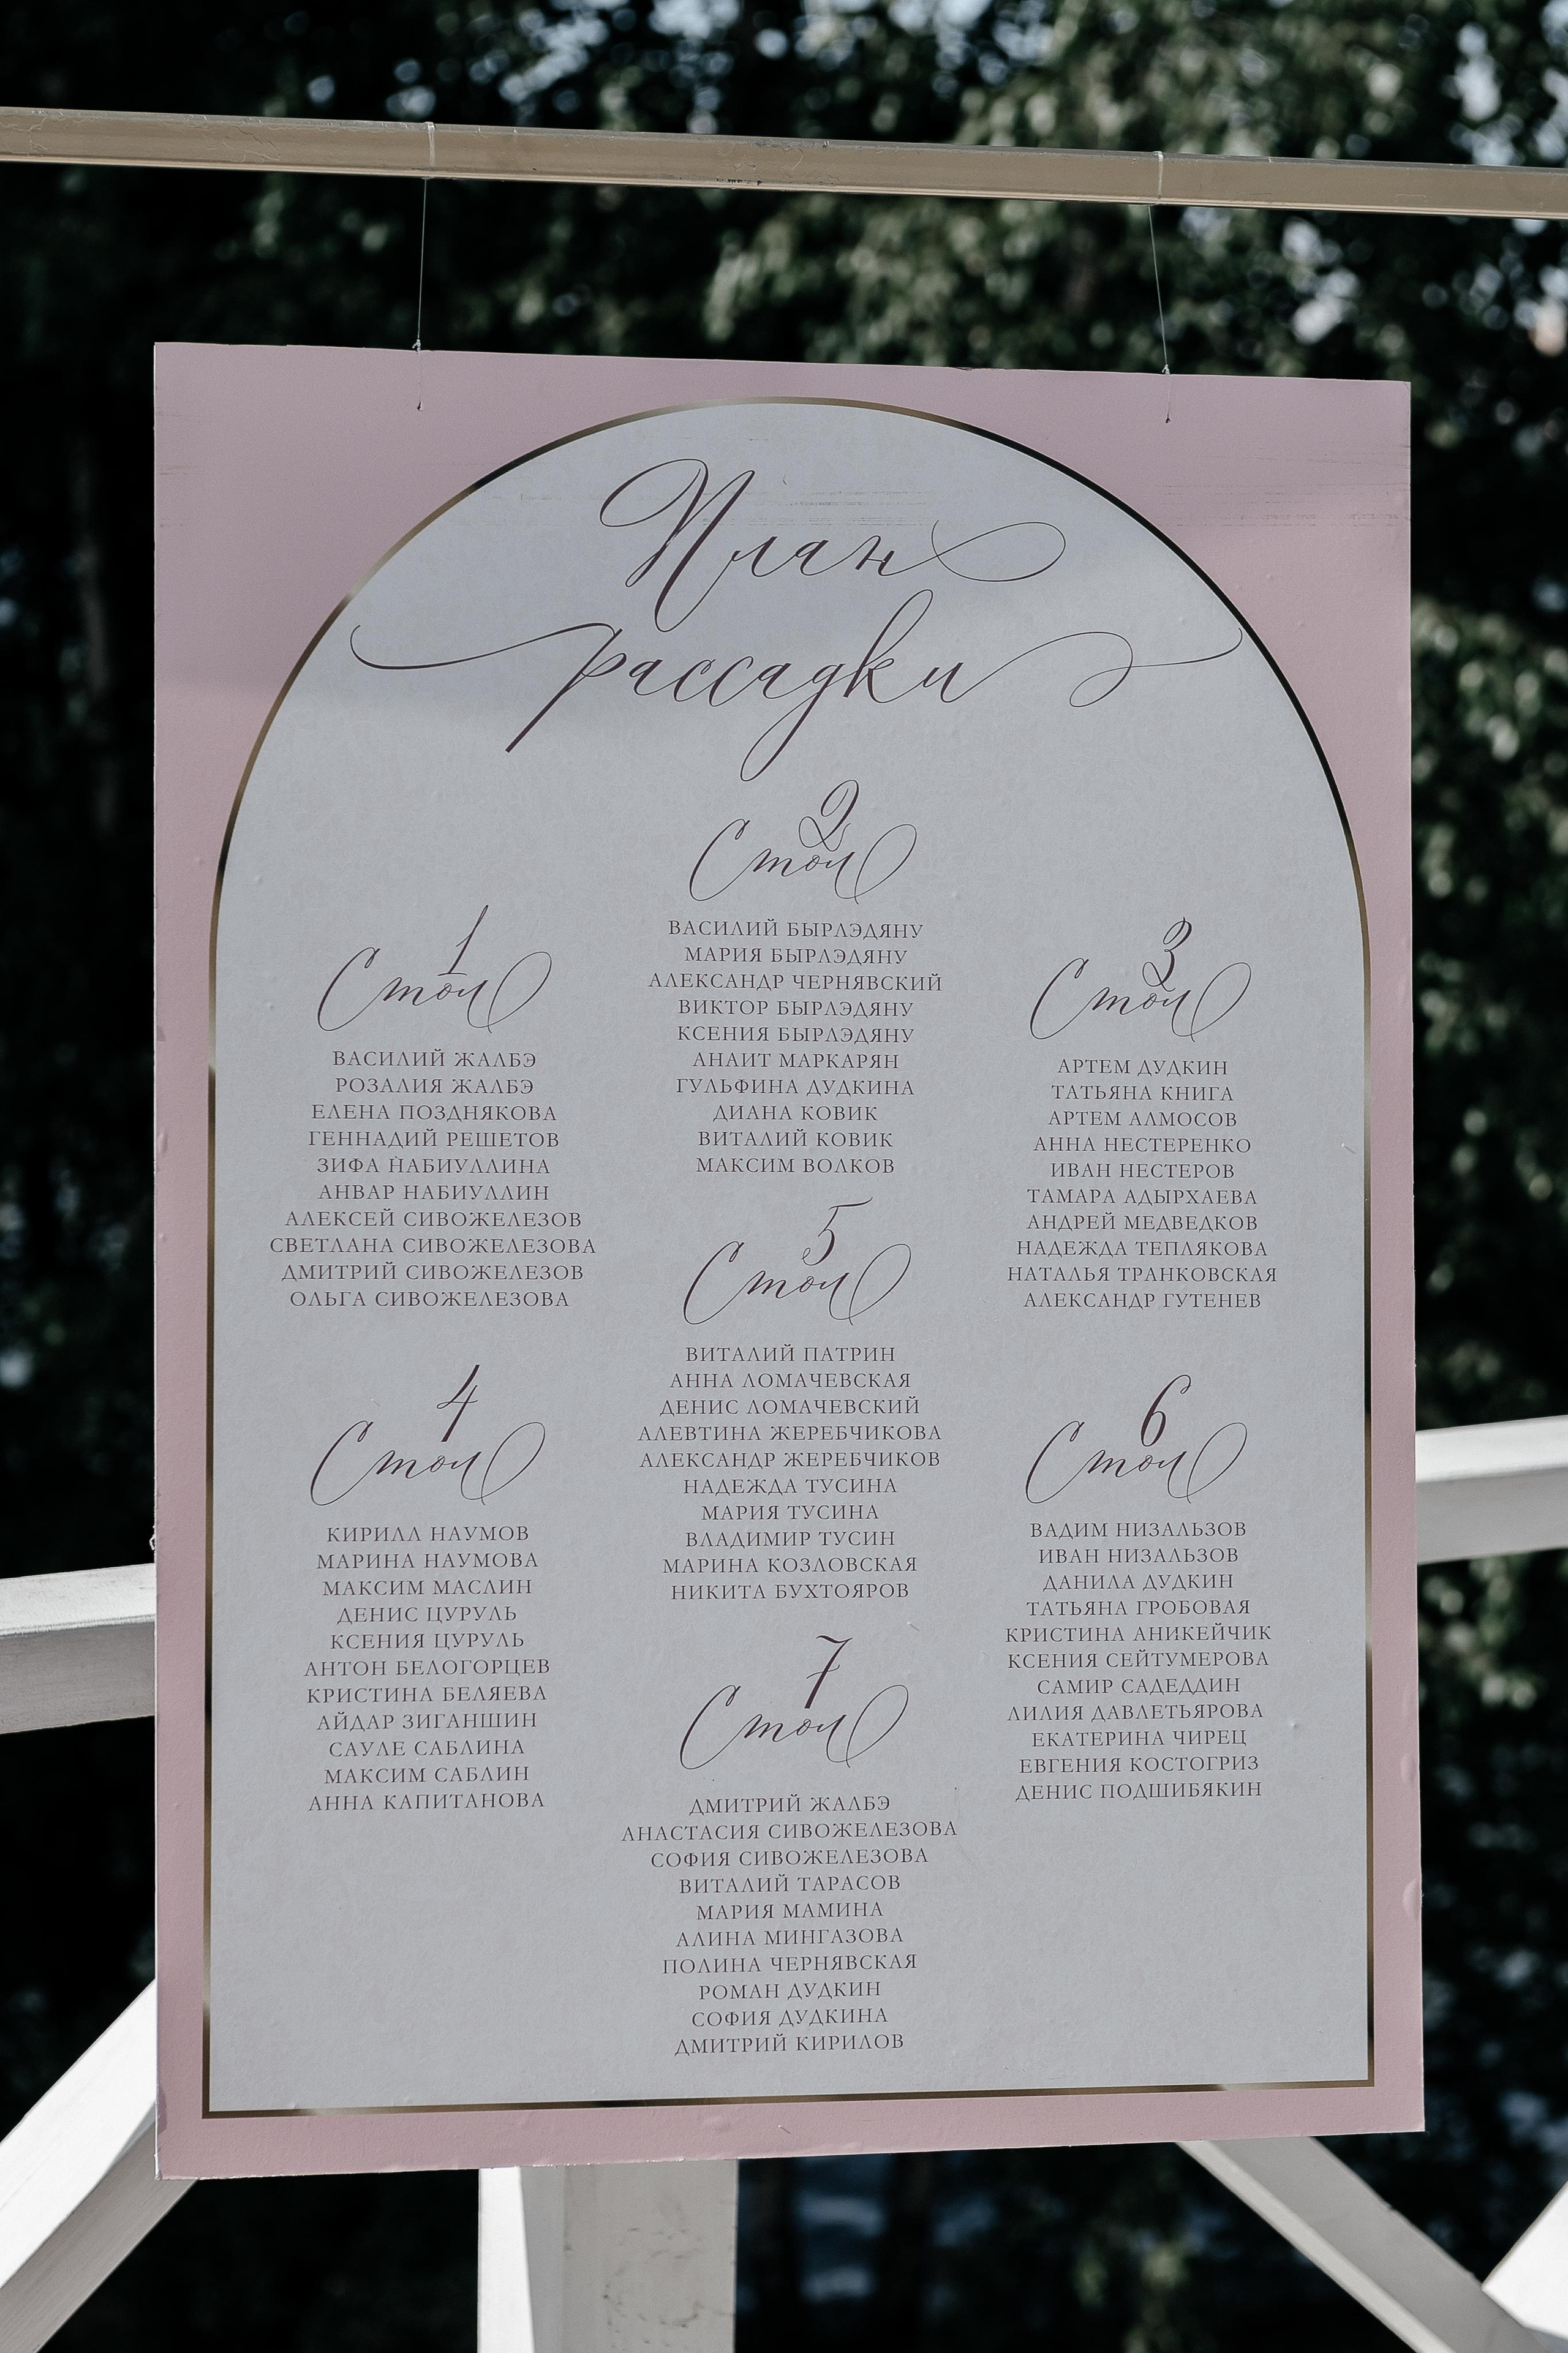 План
рассадки
1
Стол
ВАСИЛИЙ ЖАЛБЭ
РОЗАЛИЯ ЖАЛБЭ
ЕЛЕНА ПОЗДНЯКОВА
ГЕННАДИЙ РЕШЕТОВ
ЗИФА НАБИУЛЛИНА
АНВАР НАБИУЛЛИН
АЛЕКСЕЙ СИВОЖЕЛЕЗОВ
СВЕТЛАНА СИВОЖЕЛЕЗОВА
ДМИТРИЙ СИВОЖЕЛЕЗОВ
ОЛЬГА СИВОЖЕЛЕЗОВА
2
Стол
ВАСИЛИЙ БЫРЛЭДЯНУ
МАРИЯ БЫРЛЭДЯНУ
АЛЕКСАНДР ЧЕРНЯВСКИЙ
ВИКТОР БЫРЛЭДЯНУ
КСЕНИЯ БЫРЛЭДЯНУ
АНАИТ МАРКАРЯН
ГУЛЬФИНА ДУДКИНА
ДИАНА КОВИК
ВИТАЛИЙ КОВИК
МАКСИМ ВОЛКОВ
3
Стол
АРТЕМ ДУДКИН
ТАТЬЯНА КНИГА
АРТЕМ АЛМОСОВ
АННА НЕСТЕРЕНКО
ИВАН НЕСТЕРОВ
ТАМАРА АДЫРХАЕВА
АНДРЕЙ МЕДВЕДКОВ
НАДЕЖДА ТЕПЛЯКОВА
НАТАЛЬЯ ТРАНКОВСКАЯ
АЛЕКСАНДР ГУТЕНЕВ
4
Стол
КИРИЛЛ НАУМОВ
МАРИНА НАУМОВА
МАКСИМ МАСЛИН
ДЕНИС ЦУРУЛЬ
КСЕНИЯ ЦУРУЛЬ
АНТОН БЕЛОГОРЦЕВ
КРИСТИНА БЕЛЯЕВА
АЙДАР ЗИГАНШИН
САУЛЕ САБЛИНА
МАКСИМ САБЛИН
АННА КАПИТАНОВА
5
Стол
ВИТАЛИЙ ПАТРИН
АННА ЛОМАЧЕВСКАЯ
ДЕНИС ЛОМАЧЕВСКИЙ
АЛЕВТИНА ЖЕРЕБЧИКОВА
АЛЕКСАНДР ЖЕРЕБЧИКОВ
НАДЕЖДА ТУСИНА
МАРИЯ ТУСИНА
ВЛАДИМИР ТУСИН
МАРИНА КОЗЛОВСКАЯ
НИКИТА БУХТОЯРОВ
6
Стол
ВАДИМ НИЗАЛЬЗОВ
ИВАН НИЗАЛЬЗОВ
ДАНИЛА ДУДКИН
ТАТЬЯНА ГРОБОВАЯ
КРИСТИНА АНИКЕЙЧИК
КСЕНИЯ СЕЙТУМЕРОВА
САМИР САДЕДДИН
ЛИЛИЯ ДАВЛЕТЬЯРОВА
ЕКАТЕРИНА ЧИРЕЦ
ЕВГЕНИЯ КОСТОГРИЗ
ДЕНИС ПОДШИБЯКИН
7
Стол
ДМИТРИЙ ЖАЛБЭ
АНАСТАСИЯ СИВОЖЕЛЕЗОВА
СОФИЯ СИВОЖЕЛЕЗОВА
ВИТАЛИЙ ТАРАСОВ
МАРИЯ МАМИНА
АЛИНА МИНГАЗОВА
ПОЛИНА ЧЕРНЯВСКАЯ
РОМАН ДУДКИН
СОФИЯ ДУДКИНА
ДМИТРИЙ КИРИЛОВ